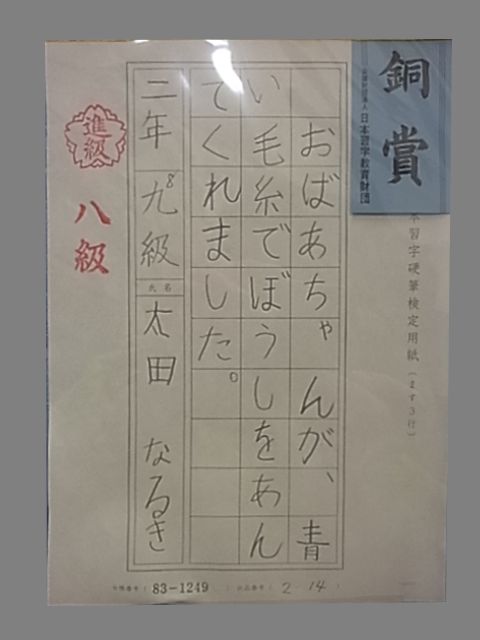 銅賞
公益財団法人 日本習字教育財団
本習字硬筆検定用紙(ます3行)
おばあちゃんが、青
い毛糸でぼうしをあん
でくれました。
二年 九級
8
氏名
太田 なるき
進級
八級
83-1249
(2-14)